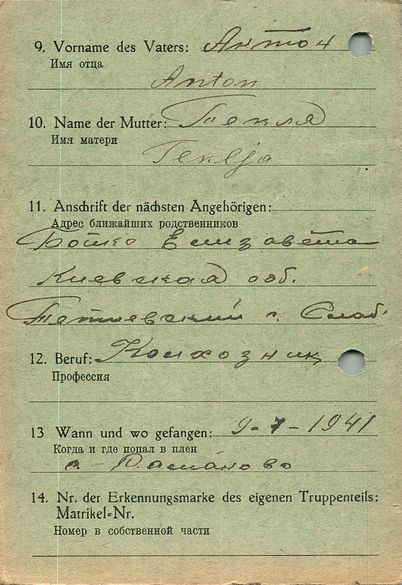 9. Vorname des Vaters: Антон
Имя отца
Anton
10. Name der Mutter: Текля
Имя матери
Teklja
11. Anschrift der nächsten Angehörigen:
Адрес ближайших родственников
Елизавета
Киевская обл.
12. Beruf: Колхозник
Профессия
13 Wann und wo gefangen: 9-7-1941
Когда и где попал в плен
с.
14. Nr. der Erkennungsmarke des eigenen Truppenteils:
Matrikel-Nr.
Номер в собственной части